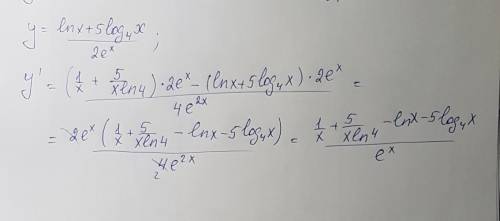 y = (ln x + 5 log₄ x) / (2eˣ) ;
y' = ((1/x + 5/(x ln 4)) · 2eˣ − (ln x + 5 log₄ x) · 2eˣ) / (4e²ˣ) =
= (2eˣ (1/x + 5/(x ln 4) − ln x − 5 log₄ x)) / (4 2 e²ˣ) = (1/x + 5/(x ln 4) − ln x − 5 log₄ x) / eˣ